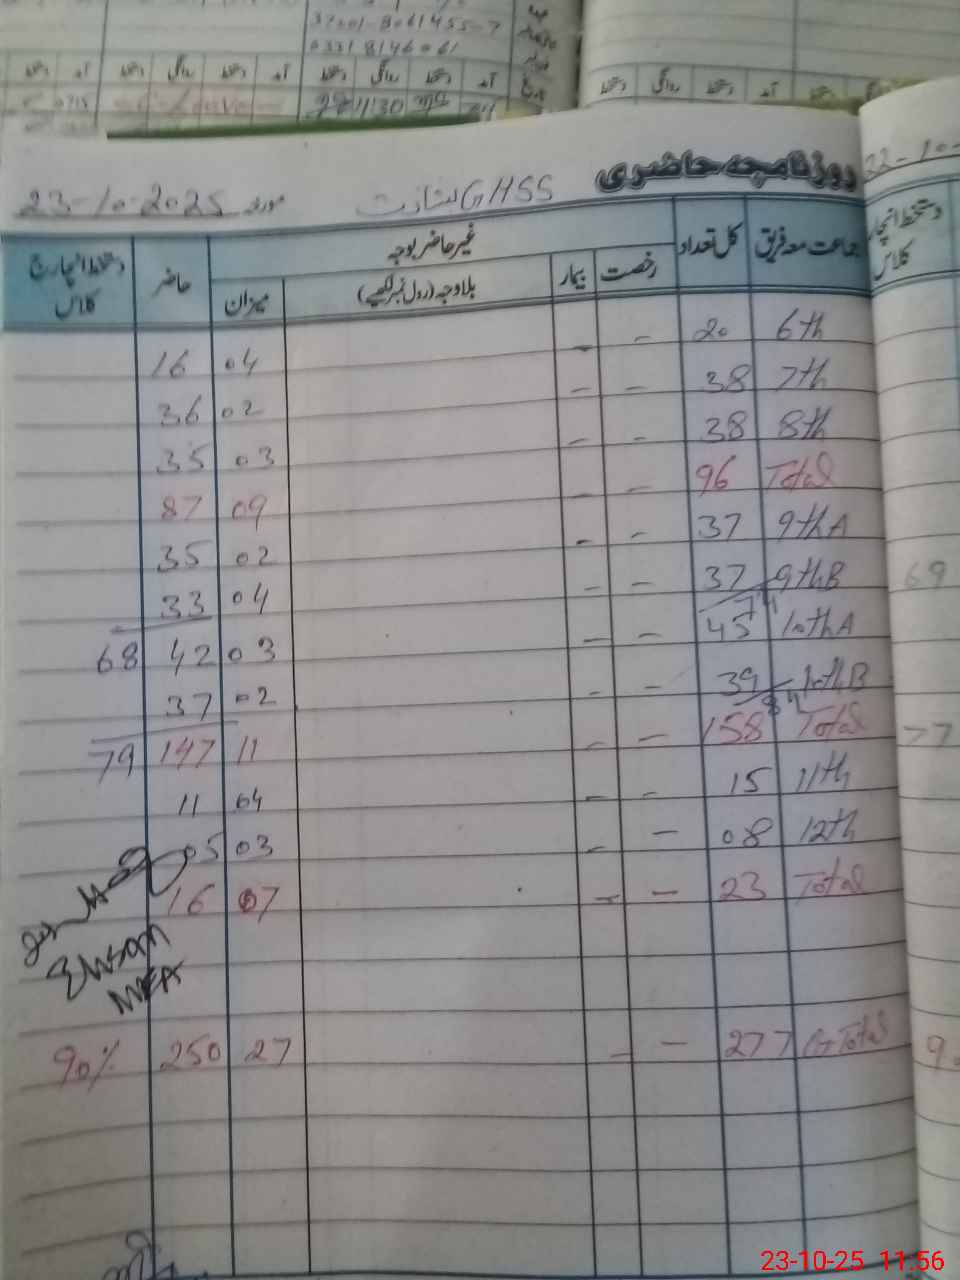 37201-8061455-7
03318146061
آمد دستخط روانگی دستخط آمد دستخط روانگی دستخط آمد
روزنامچہ حاضری
GHSS بشارت
مورخہ 23-10-2025
22-10-
جماعت معہ فریق کل تعداد غیر حاضر بوجہ حاضر دستخط انچارج کلاس
رخصت بیمار بلاوجہ (رول نمبر لکھیے) میزان
دستخط انچارج کلاس
6th 20 - - 04 16
7th 38 - - 02 36
8th 38 - - 03 35
Total 96 - - 09 87
9thA 37 - - 02 35
9thB 37 - - 04 33
74
69
10thA 45 - - 03 42 68
10thB 39 - - 02 37
84
Total 158 - - 11 147 79
77
11th 15 - - 04 11
12th 08 - - 03 05
Total 23 - - 07 16
MEA
G.Total 277 - - 27 250 90%
9
23-10-25 11:56